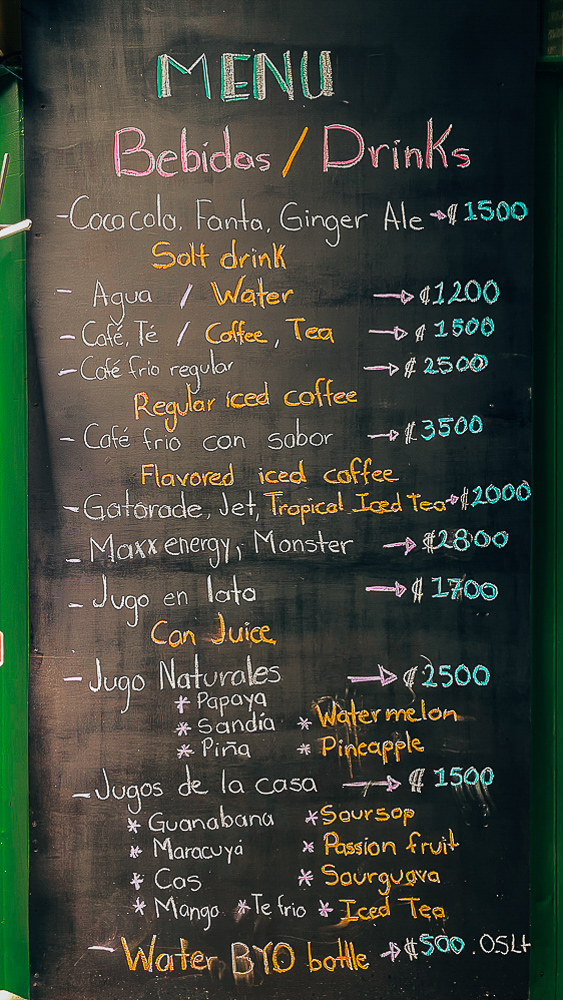 MENU
Bebidas / Drinks
- Cocacola, Fanta, Ginger Ale → ₡ 1500
Solt drink
- Agua / Water → ₡1200
- Café, Té / Coffee, Tea → ₡ 1500
- Café frio regular → ₡ 2500
Regular iced coffee
- Café frio con sabor → ₡3500
Flavored iced coffee
- Gatorade, Jet, Tropical Iced Tea → ₡2000
- Maxx energy, Monster → ₡2800
- Jugo en lata → ₡ 1700
Can Juice
- Jugo Naturales → ₡2500
* Papaya
* Sandía * Watermelon
* Piña * Pineapple
- Jugos de la casa → ₡ 1500
* Guanabana * Soursop
* Maracuyá * Passion fruit
* Cas * Sourguava
* Mango * Te frio * Iced Tea
- Water BYO bottle → ₡500 .05Lt